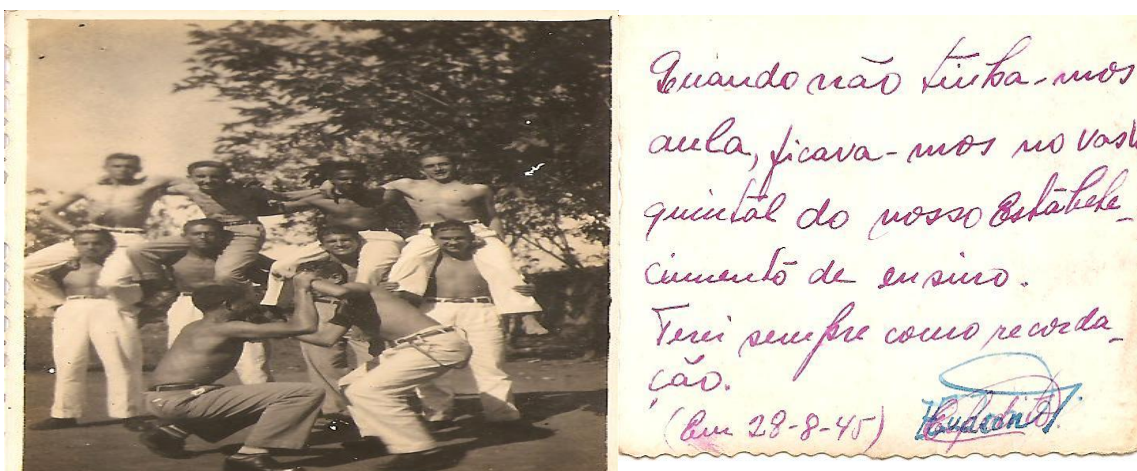 Quando não tinha-mos
aula, ficava-mos no vast
quintal do nosso Estabele-
cimento de ensino.
Terei sempre como recorda-
ção.
(Em 28-8-45)